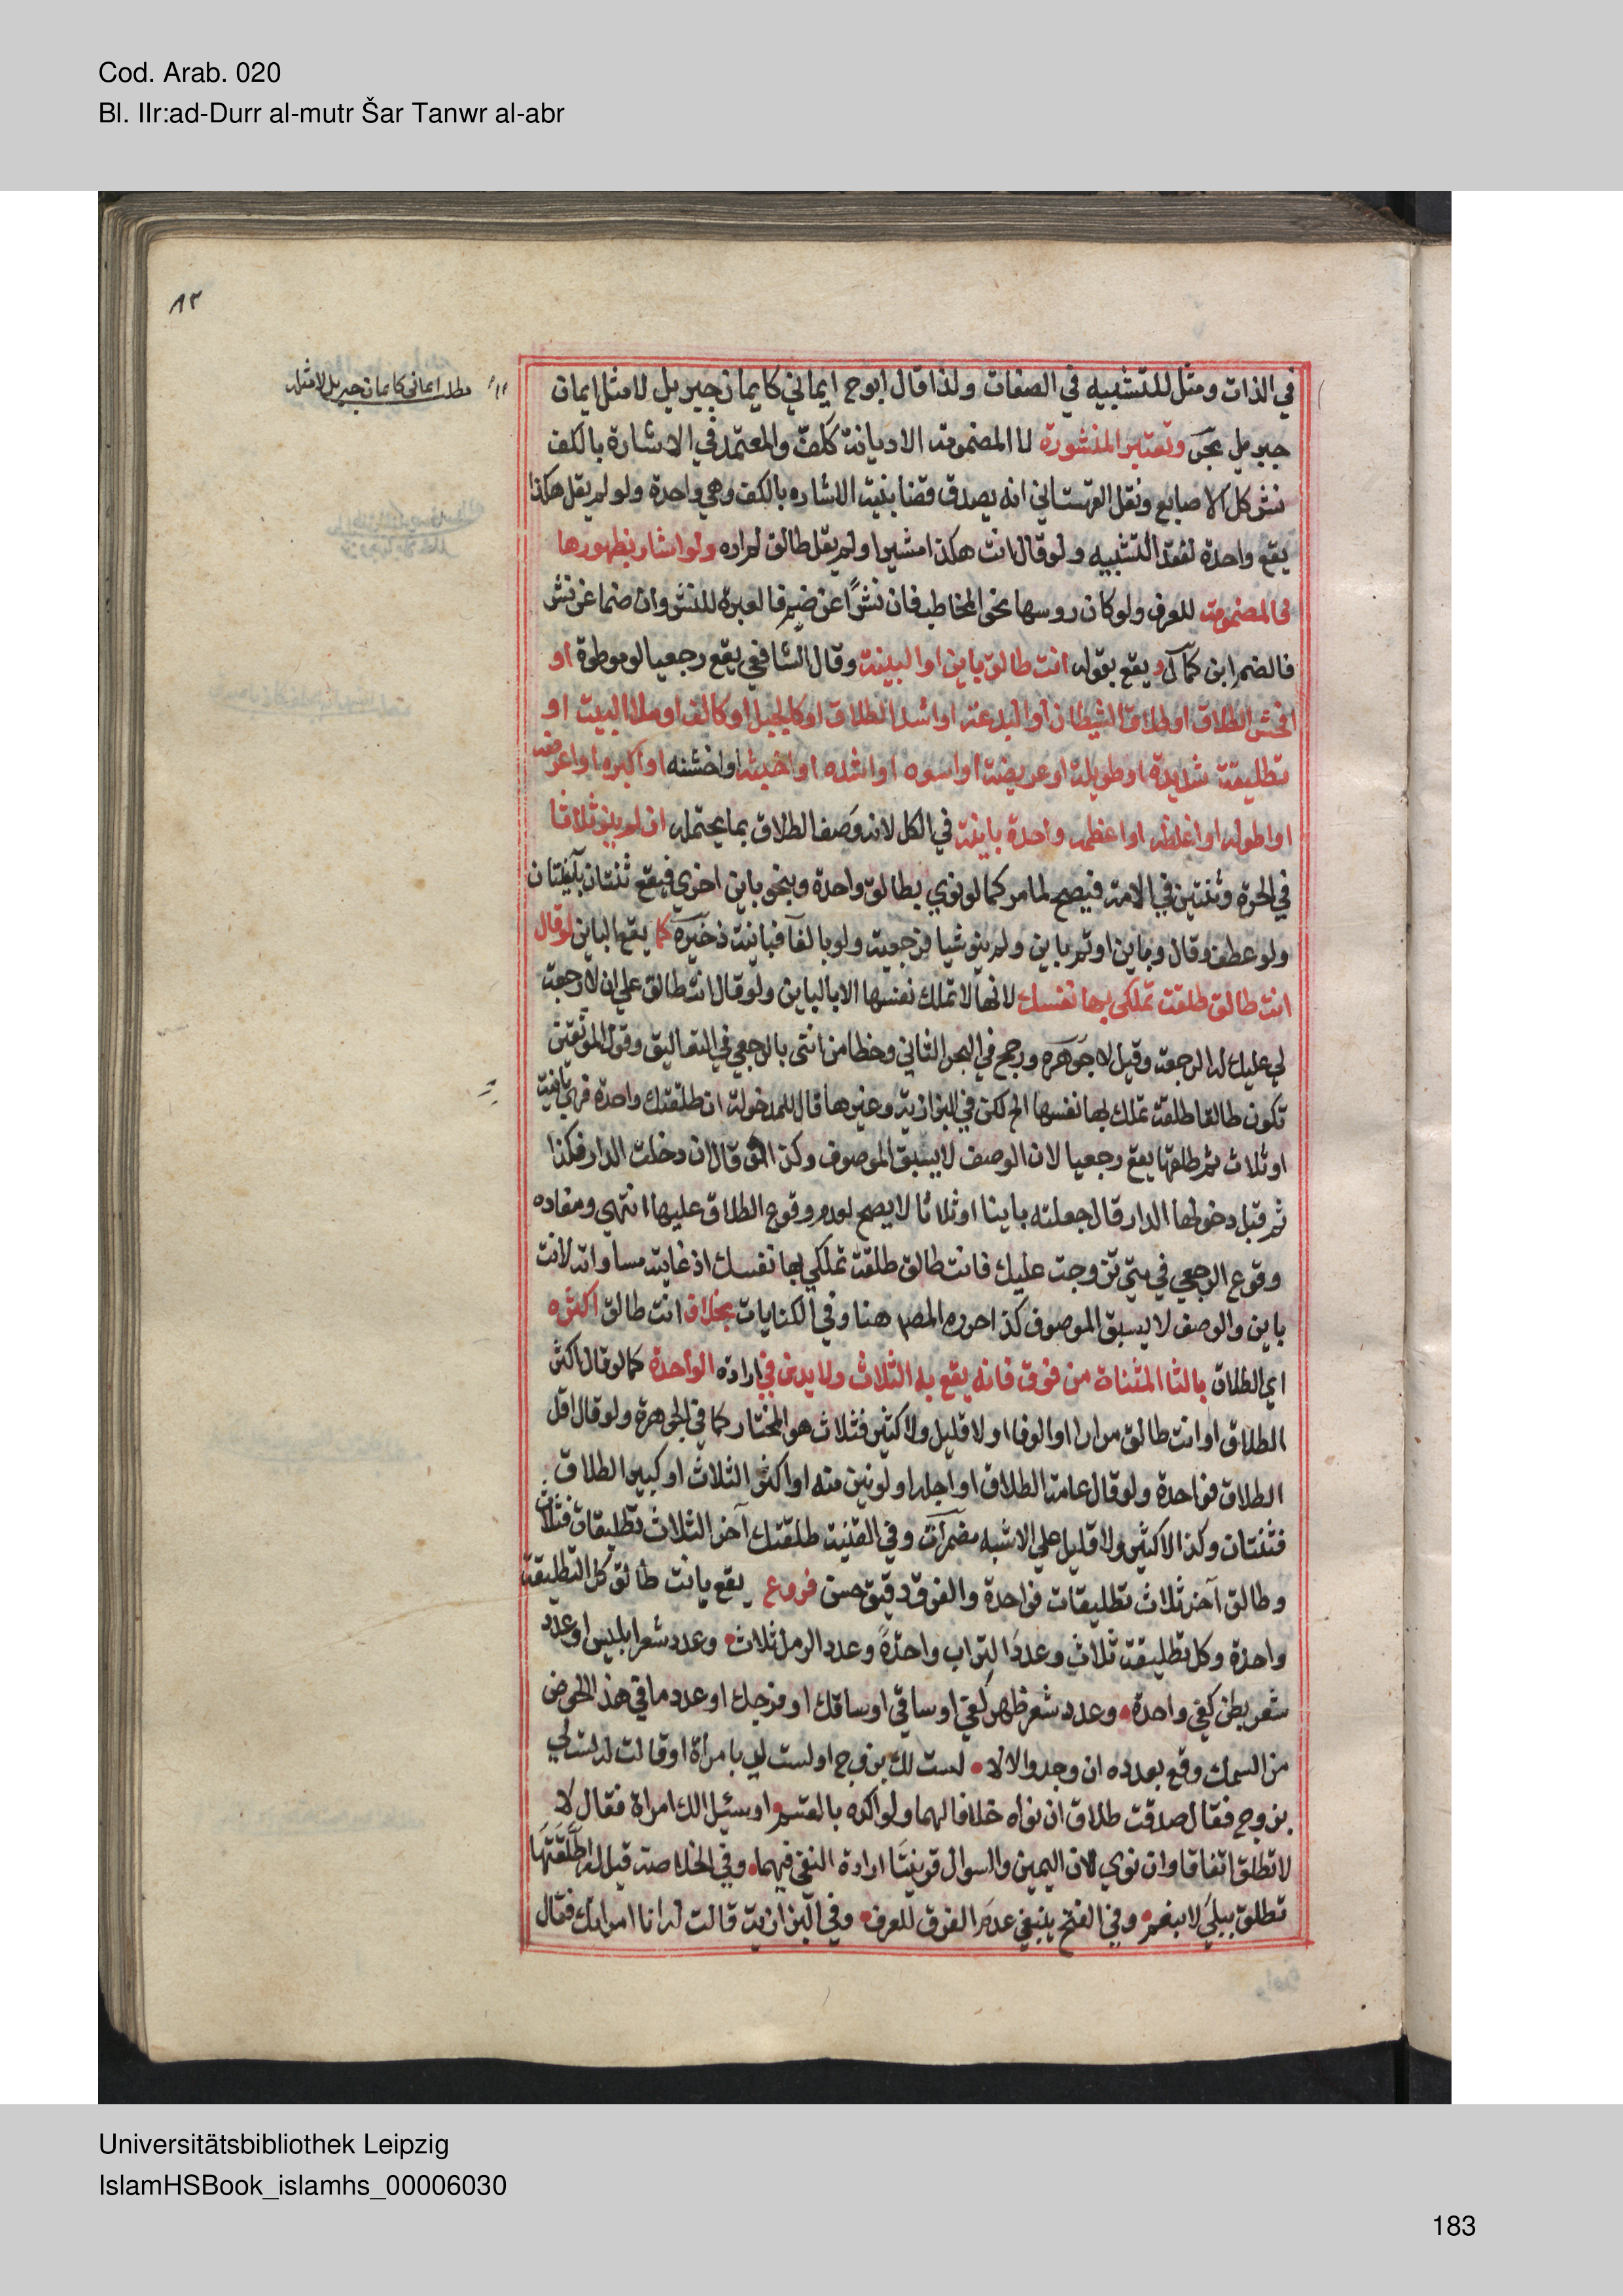 Cod. Arab. 020
Bl. IIr:ad-Durr al-mutr Šar Tanwr al-abr
٨٢
ايماني كايمان جبريل لا مثله
في الذات ومثل للتشبيه في الصفات ولذا قال ابوح ايماني كايمان جبريل لا مثل ايمان
جبريل بحر وتعتبر المنشورة لا المضمومة الا ديانة ككف والمعتمد في الاشارة بالكف
نشر كل الاصابع ونقل القهستاني انه يصدق قضا بنية الاشاره بالكف وهي واحدة ولو لم يقل هكذا
يقع واحدة لفقد التشبيه ولو قال انت هكذا مشيرا ولم يقل طالق لم اره ولو اشار بظهورها
فالمضمومة للعرف ولو كان روسها نحو المخاطب فان نشرا عن ضم فالعبرة للنشر وان ضما عن نشر
فالضم ابن كمال ويقع بقوله انت طالق باين او البينة وقال الشافعي يقع رجعيا لو موطوة او
افحش الطلاق او طلاق الشيطان او البدعة او اشد الطلاق او كالجبل او كالف او ملا البيت او
تطليقة شديدة او طويلة او عريضة او اسوه او اشده او اخبثه او اخشنه او اكبره او اعرضه
او اطوله او اغلظه او اعظمه واحدة باينة في الكل لانه وصف الطلاق بما يحتمله ان لم ينو ثلاثا
في الحرة وثنتين في الامة فيصح لما مر كما لو نوي بطالق واحدة وبنحو باين اخري فيقع ثنتان باينتان
ولو عطف وقال وباين او ثم باين ولم ينو شيا فرجعية ولو بالفا فباينة ذخيرة كما يقع الباين لو قال
انت طالق طلقة تملكي بها نفسك لانها لا تملك نفسها الا بالباين ولو قال انت طالق علي ان لا رجعة
لي عليك له الرجعة وقيل لا جوهرة ورجح في البحر الثاني وخطا من افتى بالرجعي في التعاليق وقول الموثقين
تكون طالقا طلقة تملك بها نفسها الخ لكن في البزازية وغيرها قال للمدخولة ان طلقتك واحدة فهي باينة
او ثلاث ثم طلقها يقع رجعيا لان الوصف لا يسبق الموصوف وكذا لو قال ان دخلت الدار فكذا
ثم قبل دخولها الدار قال جعلته باينا او ثلاثا لا يصح لعدم وقوع الطلاق عليها انتهى ومفاده
وقوع الرجعي في متي تزوجت عليك فانت طالق طلقة تملكي بها نفسك اذ غايته مساواته لانت
باين والوصف لا يسبق الموصوف كذا حرره المصه هنا وفي الكنايات بخلاف انت طالق اكثره
اي الطلاق بالثا المثناة من فوق فانه يقع به الثلاث ولا يدين في ارادة الواحدة كما لو قال اكثر
الطلاق او انت طالق مرارا او الوفا او لا قليل ولا كثير فثلاث هو المختار كما في الجوهرة ولو قال اقل
الطلاق فواحدة ولو قال عامة الطلاق او اجله او لونين منه او اكثر الثلاث او كبير الطلاق
فثنتان وكذا لا كثير ولا قليل علي الاشبه مضمرات وفي القنية طلقتك آخر الثلاث تطليقات فثلاث
وطالق آخر ثلاث تطليقات فواحدة والفرق دقيق حسن فروع يقع بانت طالق كل التطليقة
واحدة وكل تطليقة ثلاث وعدد التراب واحدة وعدد الرمل ثلاث وعدد شعر ابليس او عدد
شعر بطن كفي واحدة وعدد شعر ظهر كفي او ساقي او ساقك او فرجك او عدد ما في هذا الحوض
من السمك وقع بعدده ان وجد والا لا لست لك بزوج او لست لي بامراة او قالت له لست لي
بزوج فقال صدقت طلاق ان نواه خلافا لهما ولو اكده بالقسم او سئل الك امراة فقال لا
لا تطلق اتفاقا وان نوي لان اليمين والسوال قرينتا ارادة النفي فيهما وفي الخلاصة قيل له اطلقتها
تطلق ببلي لا بنعم وفي الفتح ينبغي عدم الفرق للعرف وفي البزازية قالت له انا امراتك فقال
Universitätsbibliothek Leipzig
IslamHSBook_islamhs_00006030
183